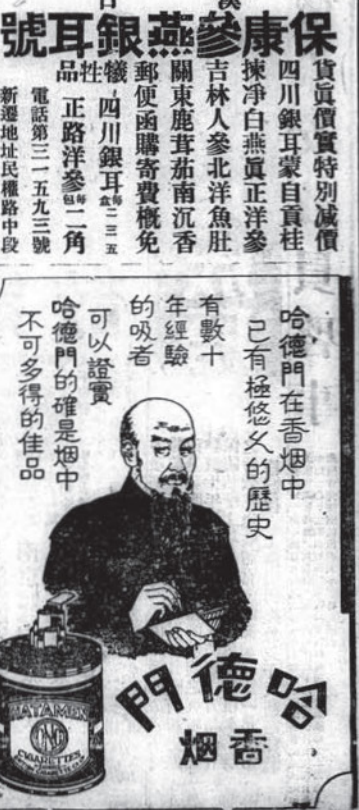 保康參燕銀耳號
貨眞價實特別减價
四川銀耳蒙自貢桂
揀净白燕眞正洋參
吉林人參北洋魚肚
關東鹿茸茄南沉香
郵便函購寄費概免
犧牲品
四川銀耳每盒二三五
正路洋參每包二角
電話第三一五九三號
新遷地址民權路中段
哈德門在香烟中
已有極悠久的歷史
有數十
年經驗
的吸者
可以證實
哈德門的確是烟中
不可多得的佳品
哈德門
香烟
HATAMEN
CIGARETTES